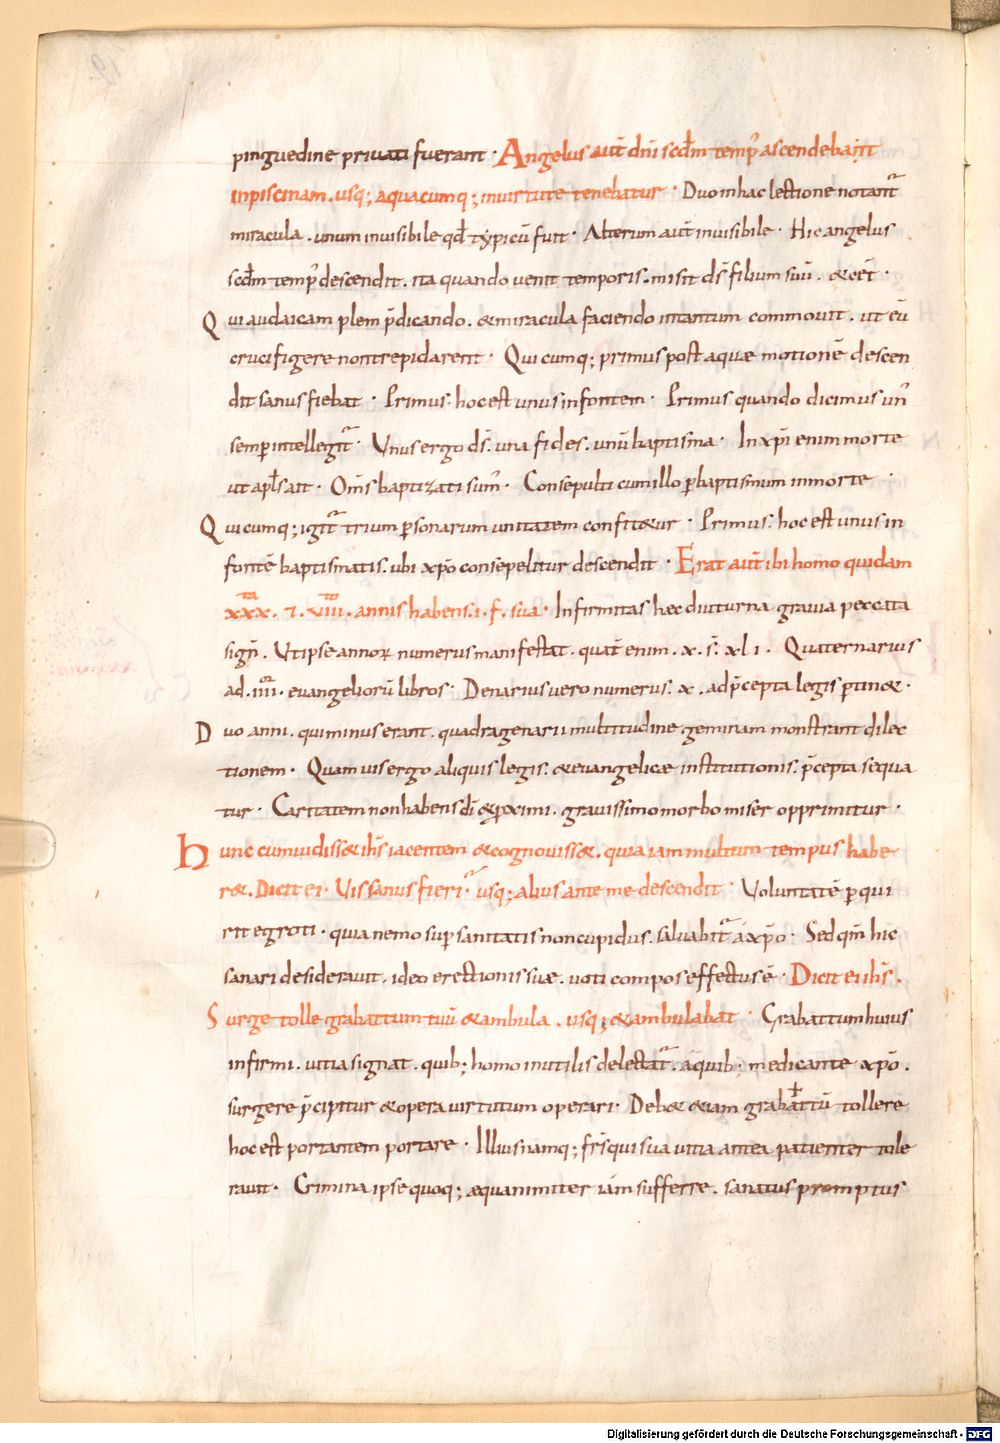 pinguedine priuati fuerant · Angelus aut̄ dn̄i scd̄m temp᷒ ascendebat
inpiscinam . usq; aquacumq; inuirtute tenebatur · Duo inhac lectione notant᷒
miracula . unum inuisibile qd̄ typicū fuit · Alterum aut̄ inuisibile · Hic angelus
scd̄m temp᷒ descendit . ita quando uenit temporis . misit ds̄ filium suū . & cet̄ ·
Qui audaicam plem p̄dicando . & miracula faciendo intantum commouit . ut eū
crucifigere nontrepidarent · Qui cumq; primus post aquæ motionē descen
dit sanus fiebat · Primus . hoc est unus in fontem · Primus quando dicimus un᷒
semp intellegit᷒ · Unus ergo ds̄ . una fides . unū baptisma · In xp̄i enim morte
ut apl̄s ait · Om̄s baptizati sum᷒ · Consepulti cum illo p baptismum in morte ·
Qui cumq; igit᷒ trium psonarum unitatem confit&ur · Primus . hoc est unus in
fontē baptismatis . ubi xp̄o consepelitur descendit · Erat aut̄ ibi homo quidam
xxx.ta 7 . viii.to annis habens . i . f . sua · Infirmitas hæc diuturna grauia peccata
sign̄ . Ut ipse annoꝝ numerus manifestat . quat̄ enim . x . s̄ . xl i . Quaternarius
ad . iiii.or euangeliorū libros · Denarius uero numerus . x . ad p̄cepta legis ptin& ·
Duo anni . qui minus erant . quadragenarii multitudine geminam monstrant dilec
tionem · Quam uis ergo aliquis legis . & euangelicæ institutionis . p̄cepta sequa
tur · Caritatem non habens dī & pximi . grauissimo morbo miser opprimitur ·
Hunc cum uidiss& ih̄s iacentem & cognouiss& . quia iam multum tempus habe
r& . Dicit ei · Uis sanus fieri . usq; alius ante me descendit · Uoluntatē p qui
rit egroti · quia nemo sup sanitatis non cupidus . saluabit᷒ a xp̄o · Sed qm̄ hic
sanari desiderauit . ideo erectionis suæ . uoti compos effectus ē · Dicit ei ih̄s .
Surge tolle grabattum tuū & ambula . usq; & ambulabat · Grabattum huius
infirmi . uitia signat . quib; homo inutilis delectat᷒ . a quib; medicante xp̄o .
surgere p̄cipitur & opera uirtutum operari · Deb& &iam grabattū tollere
hoc est portantem portare · Illius namq; fr̄s qui sua uitia antea patienter tole
rauit · Crimina ipse quoq; æquanimiter iam sufferre . sanatus promptus
Digitalisierung gefördert durch die Deutsche Forschungsgemeinschaft - DFG